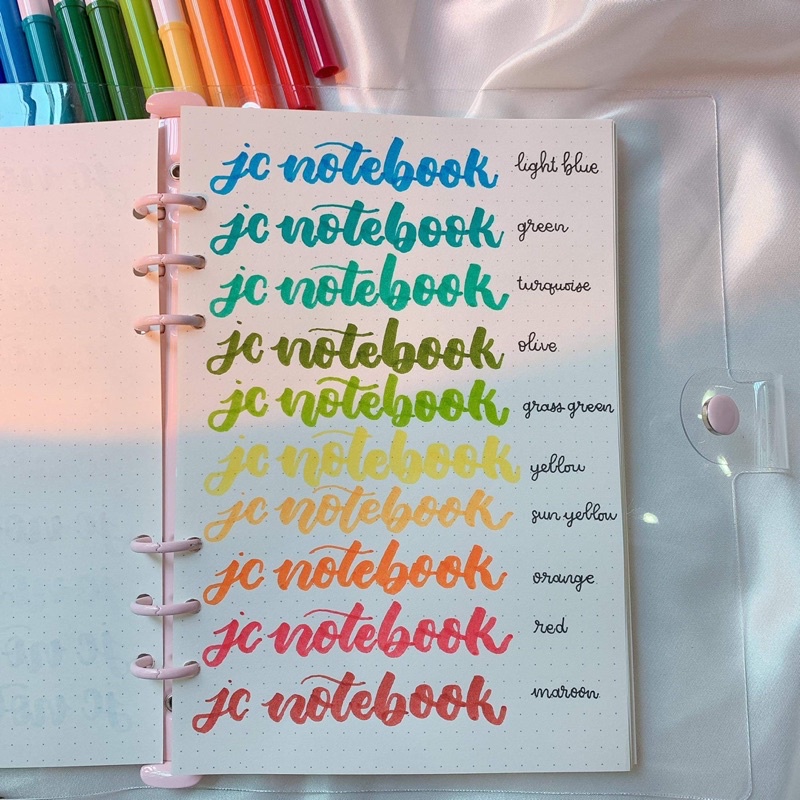 jc notebook light blue
jc notebook green
jc notebook turquoise
jc notebook olive
jc notebook grass green
jc notebook yellow
jc notebook sun yellow
jc notebook orange
jc notebook red
jc notebook maroon